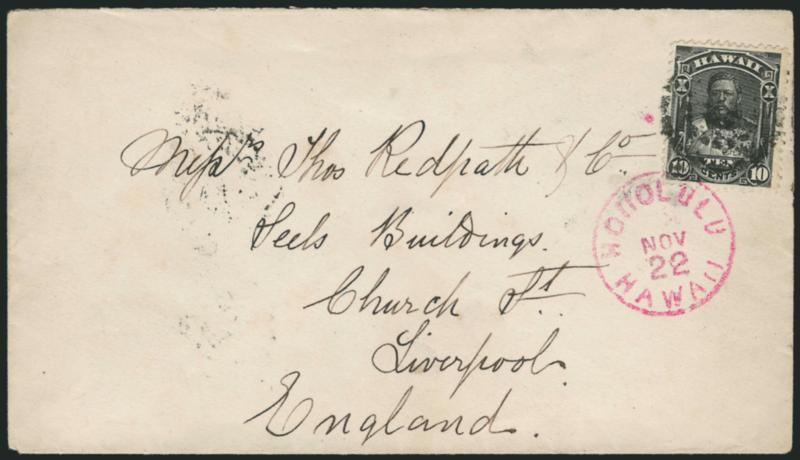 HAWAII
TEN
10 CENTS 10
Messrs Thos Redpath & Co
Seels Buildings.
Church St.
Liverpool.
England.
HONOLULU
NOV
22
HAWAII